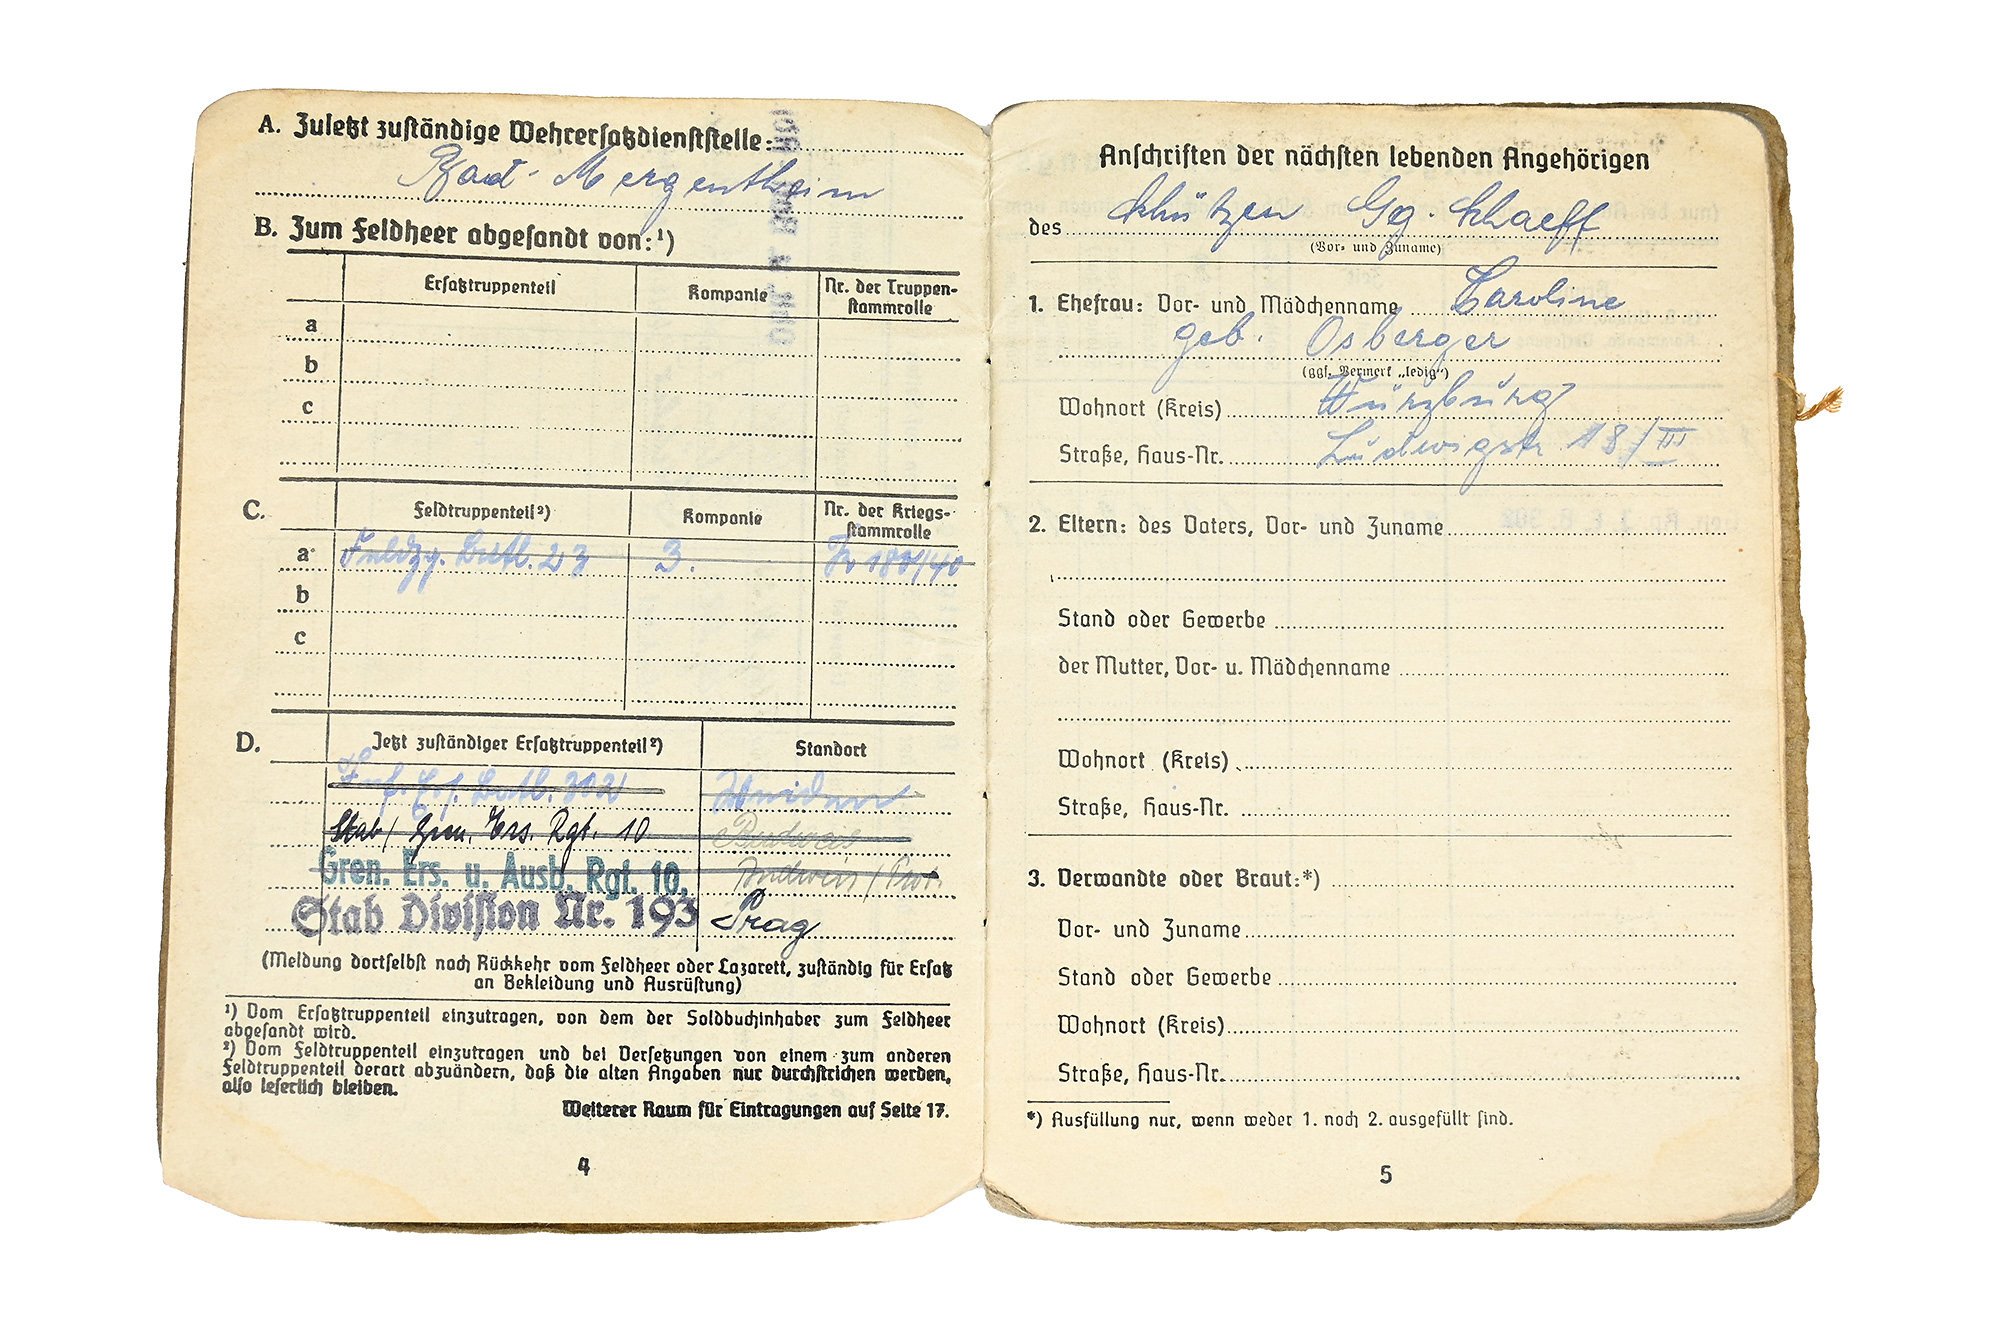 A. Zuletzt zuständige Wehrersatzdienststelle:
Bad-Mergentheim
B. Zum Feldheer abgesandt von:¹)
Ersatztruppenteil Kompanie Nr. der Truppen-
stammrolle
a
b
c
C. Feldtruppenteil²) Kompanie Nr. der Kriegs-
stammrolle
a 3.
b
c
D. Jetzt zuständiger Ersatztruppenteil²) Standort
Inf. Ers. Batl. 302 Weiden
Stab/ Gren. Ers. Rgt. 10 Budweis
Gren. Ers. u. Ausb. Rgt. 10. Budweis
Stab Division Nr. 193 Prag
(Meldung dortselbst nach Rückkehr vom Feldheer oder Lazarett, zuständig für Ersatz
an Bekleidung und Ausrüstung)
¹) Vom Ersatztruppenteil einzutragen, von dem der Soldbuchinhaber zum Feldheer
abgesandt wird.
²) Vom Feldtruppenteil einzutragen und bei Versetzungen von einem zum anderen
Feldtruppenteil derart abzuändern, daß die alten Angaben nur durchstrichen werden,
also leserlich bleiben.
Weiterer Raum für Eintragungen auf Seite 17.
4
Anschriften der nächsten lebenden Angehörigen
des Schützen Gg. Schaeff
(Vor- und Zuname)
1. Ehefrau: Vor- und Mädchenname Caroline
geb. Osberger
(ggf. Vermerk „ledig")
Wohnort (Kreis) Würzburg
Straße, Haus-Nr. Ludwigstr 18/III
2. Eltern: des Vaters, Vor- und Zuname
Stand oder Gewerbe
der Mutter, Vor- u. Mädchenname
Wohnort (Kreis)
Straße, Haus-Nr.
3. Verwandte oder Braut:*)
Vor- und Zuname
Stand oder Gewerbe
Wohnort (Kreis)
Straße, Haus-Nr.
*) Ausfüllung nur, wenn weder 1. noch 2. ausgefüllt sind.
5